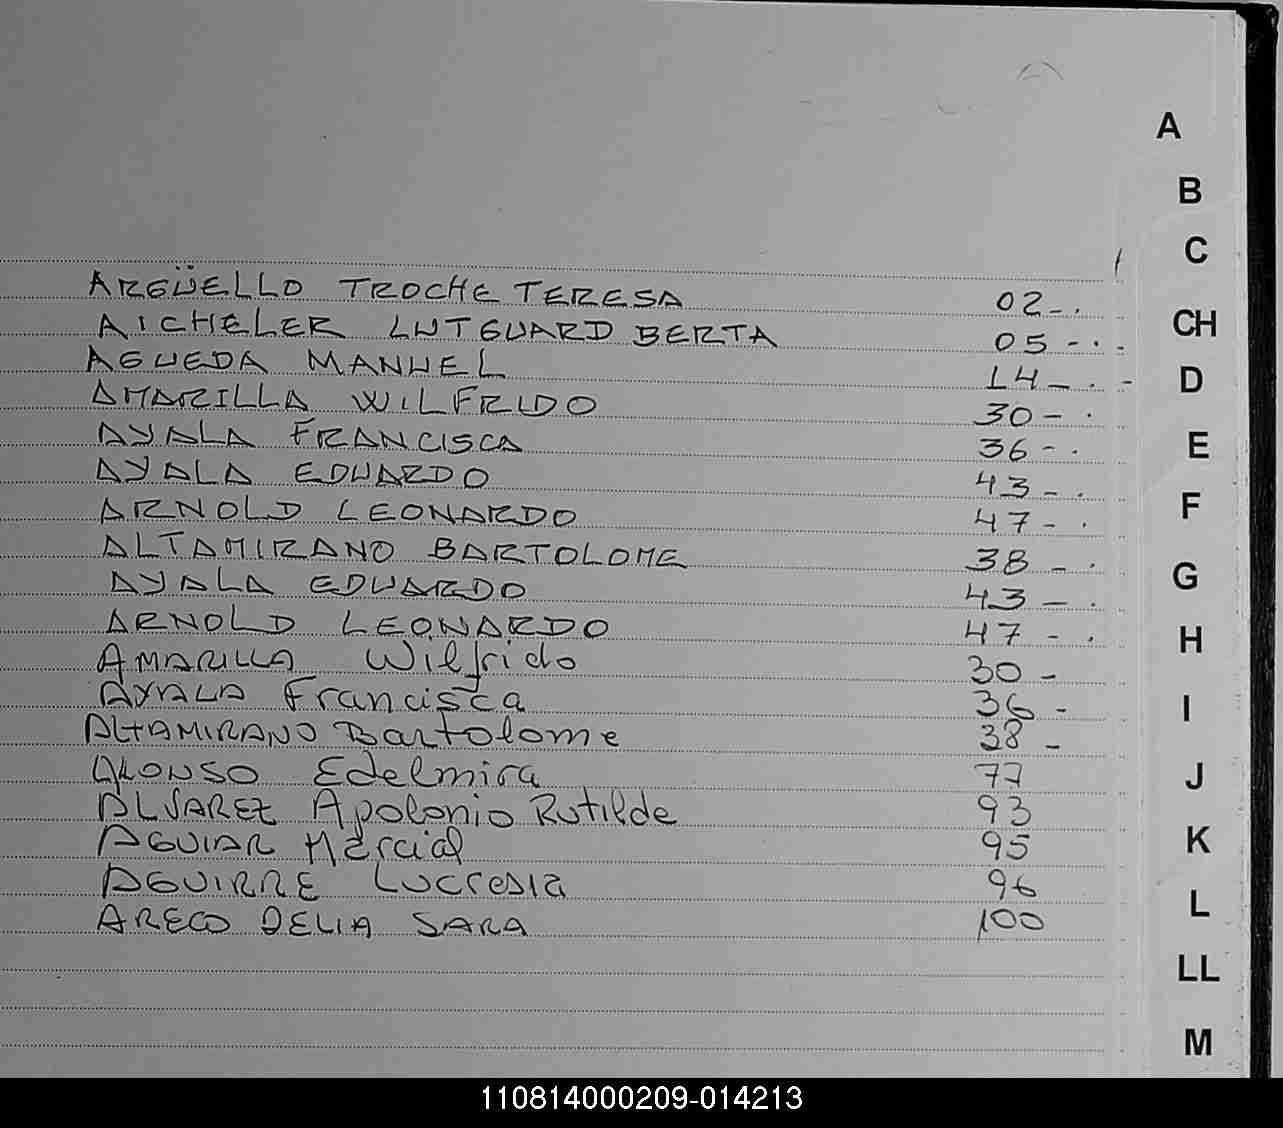 A
B
C
ARGÜELLO TROCHE TERESA 02-.
CH
AICHELER LUTGUARD BERTA 05-.-
AGUEDA MANUEL 14-.-
D
AMARILLA WILFRIDO 30-.
AYALA FRANCISCA 36-.
E
AYALA EDUARDO 43-.
ARNOLD LEONARDO 47-.
F
ALTAMIRANO BARTOLOME 38-.
G
AYALA EDUARDO 43-.
ARNOLD LEONARDO 47-.
H
AMARILLA Wilfrido 30-
AYALA Francisca 36-
I
ALTAMIRANO Bartolome 38-
ALONSO Edelmira 77
J
ALVAREZ Apolonio Rutilde 93
AGUIAR Marcial 95
K
AGUIRRE Lucresia 96
L
ARECO DELIA SARA 100
LL
M
110814000209-014213